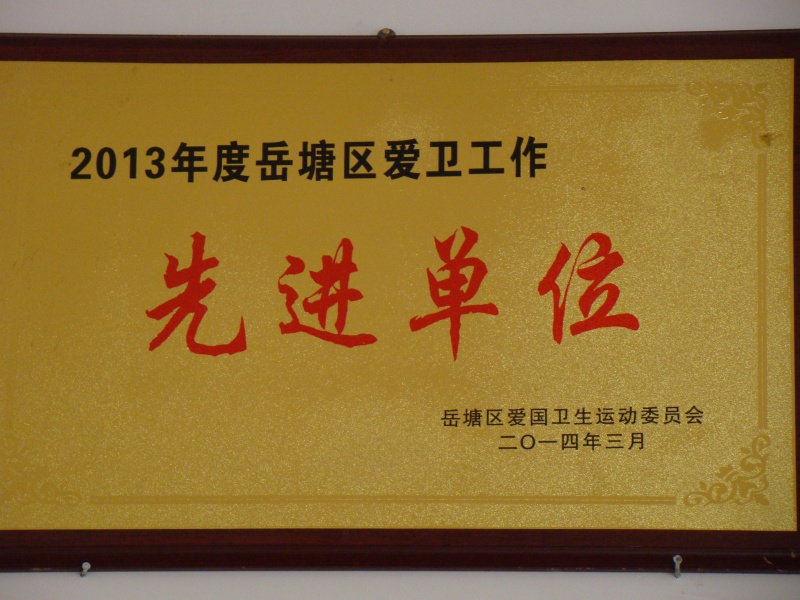 2013年度岳塘区爱卫工作
先进单位
岳塘区爱国卫生运动委员会
二〇一四年三月